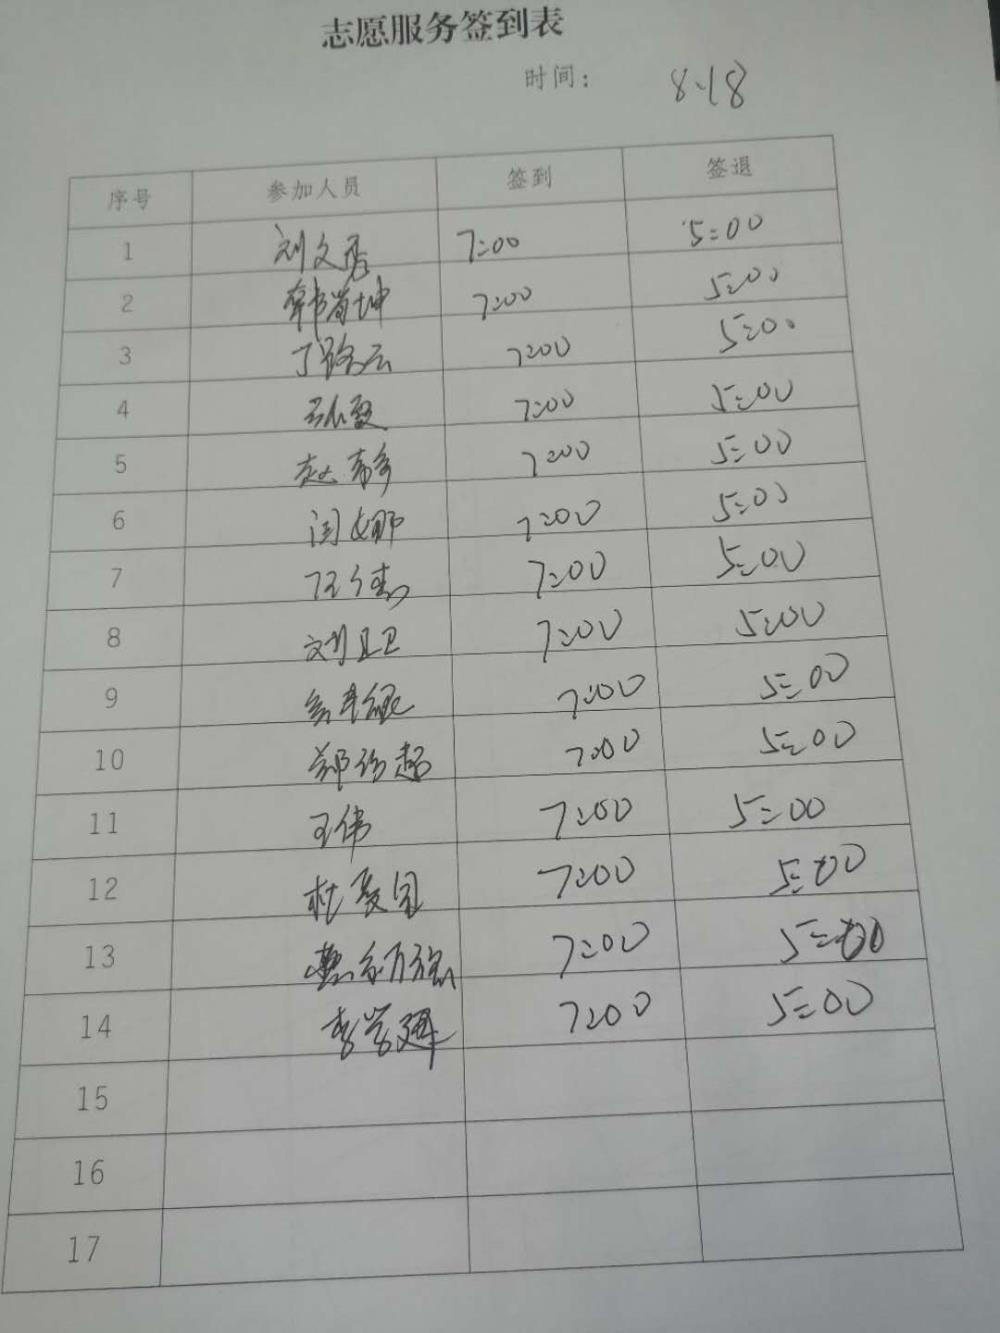 志愿服务签到表
时间： 8.18
序号 参加人员 签到 签退
1 刘文秀 7:00 5:00
2 韩 坤 7:00 5:00
3 丁路云 7:00 5:00
4 张 7:00 5:00
5 赵 7:00 5:00
6 闫娜 7:00 5:00
7 7:00 5:00
8 刘卫卫 7:00 5:00
9 7:00 5:00
10 郑 超 7:00 5:00
11 王伟 7:00 5:00
12 杜 7:00 5:00
13 7:00 5:00
14 李学建 7:00 5:00
15
16
17